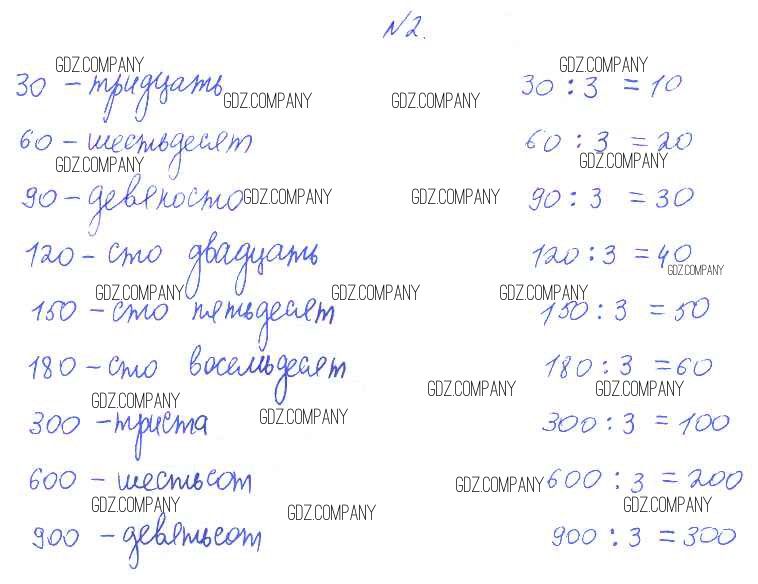 N2.
GDZ.COMPANY GDZ.COMPANY
30 - тридцать 30 : 3 = 10
GDZ.COMPANY GDZ.COMPANY
60 - шестьдесят 60 : 3 = 20
GDZ.COMPANY GDZ.COMPANY
90 - девяносто GDZ.COMPANY GDZ.COMPANY 90 : 3 = 30
120 - сто двадцать 120 : 3 = 40
GDZ.COMPANY
GDZ.COMPANY GDZ.COMPANY GDZ.COMPANY
150 - сто пятьдесят 150 : 3 = 50
180 - сто восемьдесят 180 : 3 = 60
GDZ.COMPANY GDZ.COMPANY
GDZ.COMPANY GDZ.COMPANY
300 - триста 300 : 3 = 100
600 - шестьсот GDZ.COMPANY 600 : 3 = 200
GDZ.COMPANY GDZ.COMPANY GDZ.COMPANY
900 - девятьсот 900 : 3 = 300